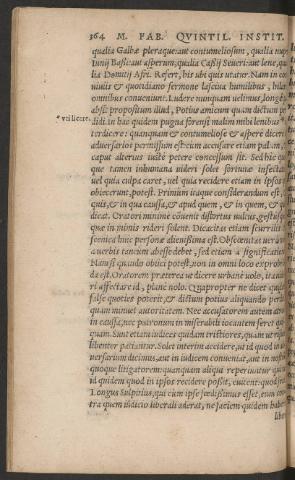 364 M. FAB. QVINTIL. INSTIT.
qualia Galbæ pleraque: aut contumeliosum, qualia nuper
Iunij Bassi: aut asperum, qualia Cassij Seueri: aut lene, qua
lia Domitij Afri. Refert, his ubi quis utatur. Nam in co
uiuiis & quotidiano sermone lasciua humilibus, hilaria
omnibus conuenient. Ludere nunquam uelimus, longéque
absit propositum illud, Potius amicum quàm dictum per
didi. In hac quidem pugna forensi malim mihi lenibus
uti licere: quanquam & contumeliose & aspere dicere in
aduersarios permissum est: cùm accusare etiam palam, &
caput alterius iuste petere concessum sit. Sed hic quo
que tamen inhumana uideri solet fortunæ insectatio,
uel quia culpa caret, uel quia recidere etiam in ipsos qui
obiecerunt, potest. Primum itaque considerandum est, &
quis, & in qua caussa, & apud quem, & in quem, & quid
dicat. Oratori minime cōuenit distortus uultus, gestusque:
quæ in mimis rideri solent. Dicacitas etiam scurrilis, &
scenica huic personæ alienissima est. Obscœnitas uero non
a uerbis tantum abesse debet, sed etiam à significatione.
Nam si quando obiici potest, non in omni loco exprobran
da est. Oratorem præterea ut dicere urbane uolo, ita uide
ri affectare id, plane nolo. Quapropter ne dicet quidem
false quoties poterit, & dictum potius aliquando perdet
quàm minuet autoritatem. Nec accusatorem autem atroci
in caussa, nec patronum in miserabili iocantem feret quis
quam. Sunt etiam iudices quidam tristiores, quàm ut risum
libenter patiantur. Solet interim accidere, ut id quod in ad
uersarium dicimus, aut in iudicem conueniat, aut in nostrum
quoque litigatorem: quanquam aliqui reperiuntur qui ne
id quidem quod in ipsos recidere possit, euitent: quod fecit
Longus Sulpitius, qui cùm ipse fœdissimus esset, eum con
tra quem iudicio liberali aderat, ne faciem quidem habere
liber